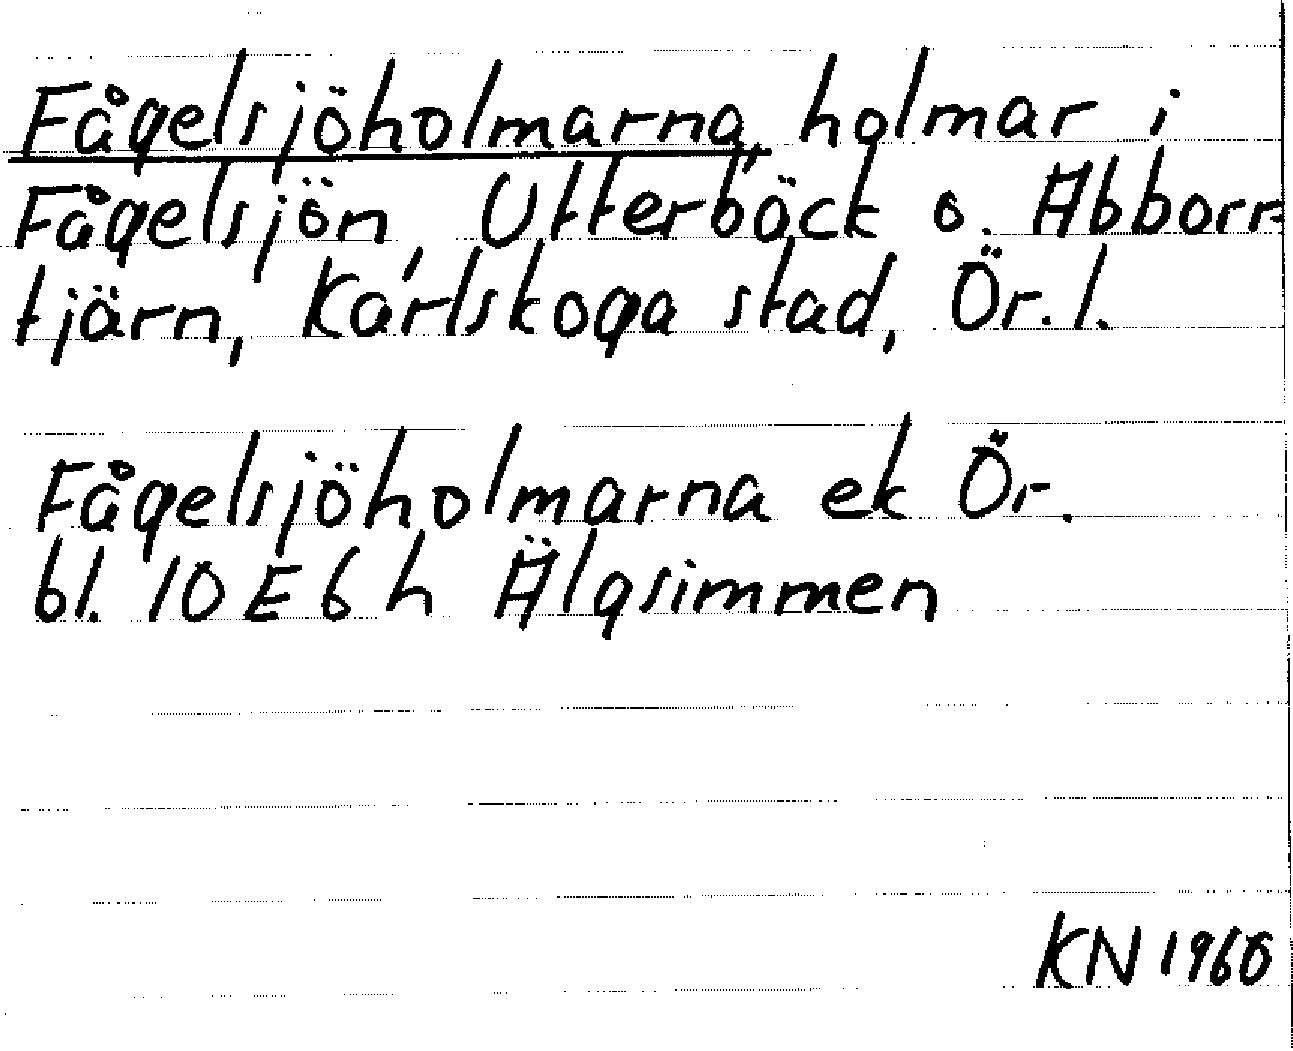 Fågelsjöholmarna, holmar i
Fågelsjön, Utterbäck o. Abborr-
tjärn, Karlskoga stad, Ör. l.
Fågelsjöholmarna ek Ör.
bl. 10 E 6 h Älgsimmen
KN 1960